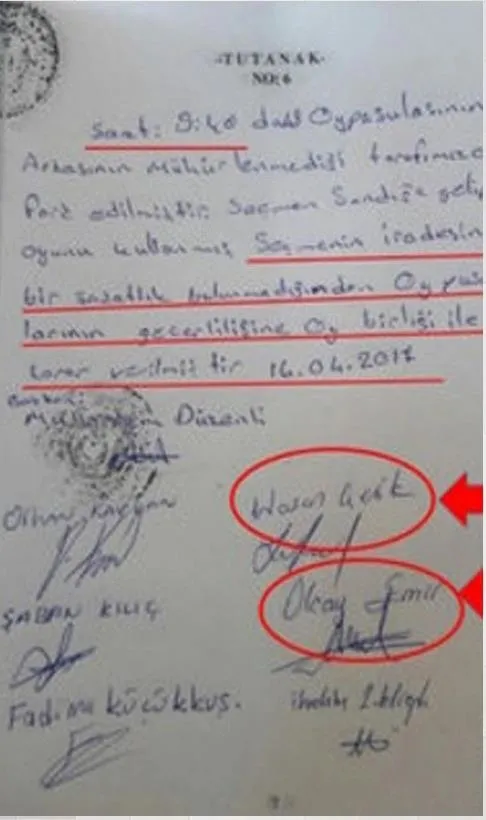 -TUTANAK-
NO:6
Saat: 9:40 da Oypusulasının
Arkasının Mühürlenmediği tarafımızca
Fark edilmiştir. Seçmen Sandığa gelip
oyunu kullanmış Seçmenin iradesin
bir sakatlık bulunmadığından Oy pus
larının geçerliliğine Oy birliği ile
karar verilmiştir 16.04.2017
Düzenli
Orhan
Hasan Açık
ŞABAN KILIÇ
Olcay Emir
Fadime Küçükkuş.